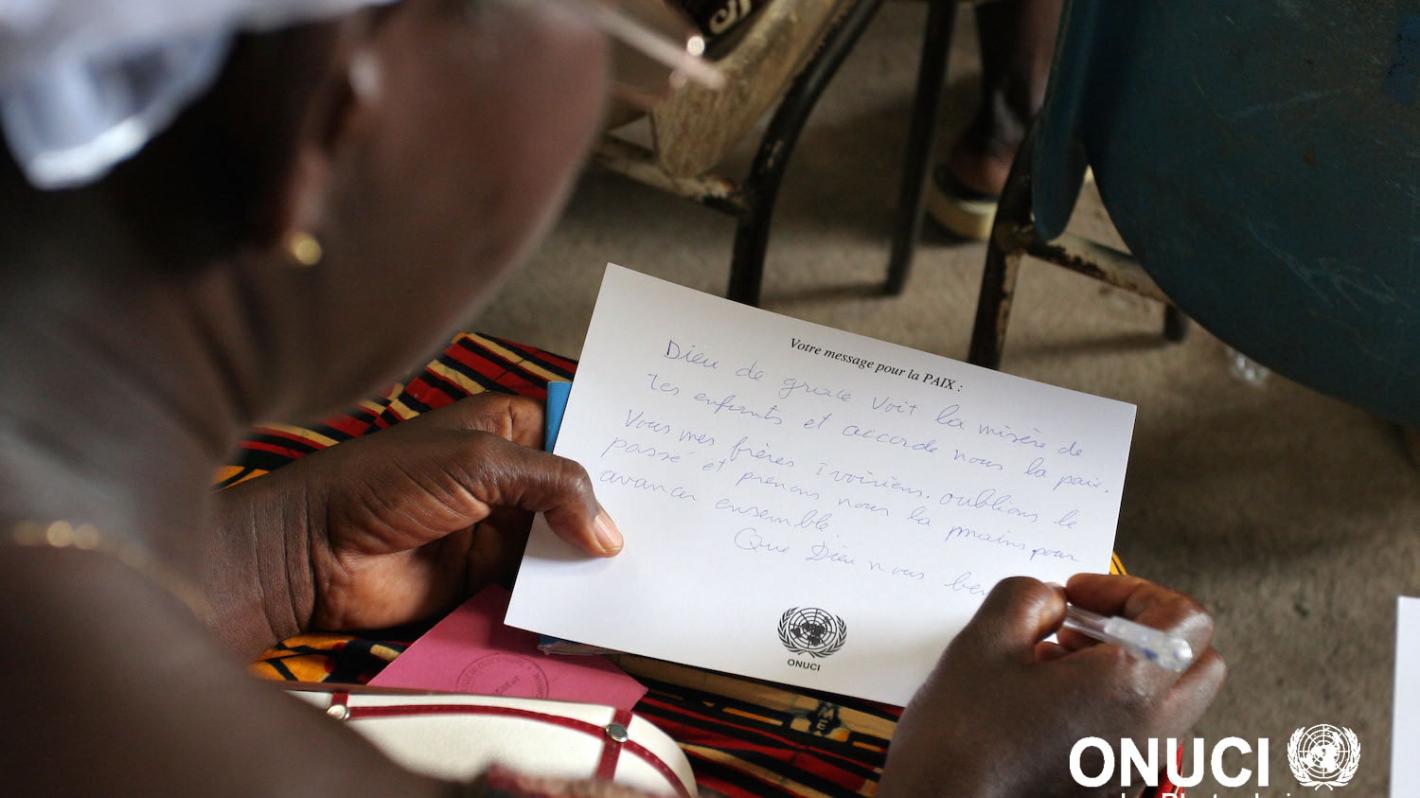 Votre message pour la PAIX :
Dieu de grace Voit la misère de
tes enfants et accorde nous la paix.
Vous mes frères ivoiriens. oublions le
passé et prenons nous la mains pour
avancer ensemble
Que Dieu nous
ONUCI
ONUCI